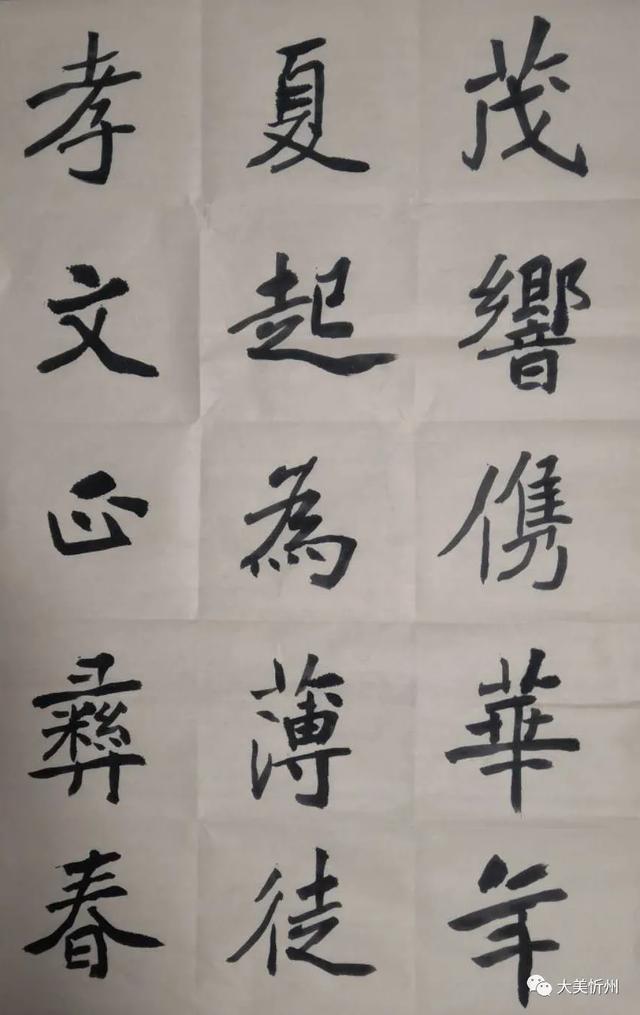 茂響儁華年
夏起為薄徒
孝文正彝春
大美忻州